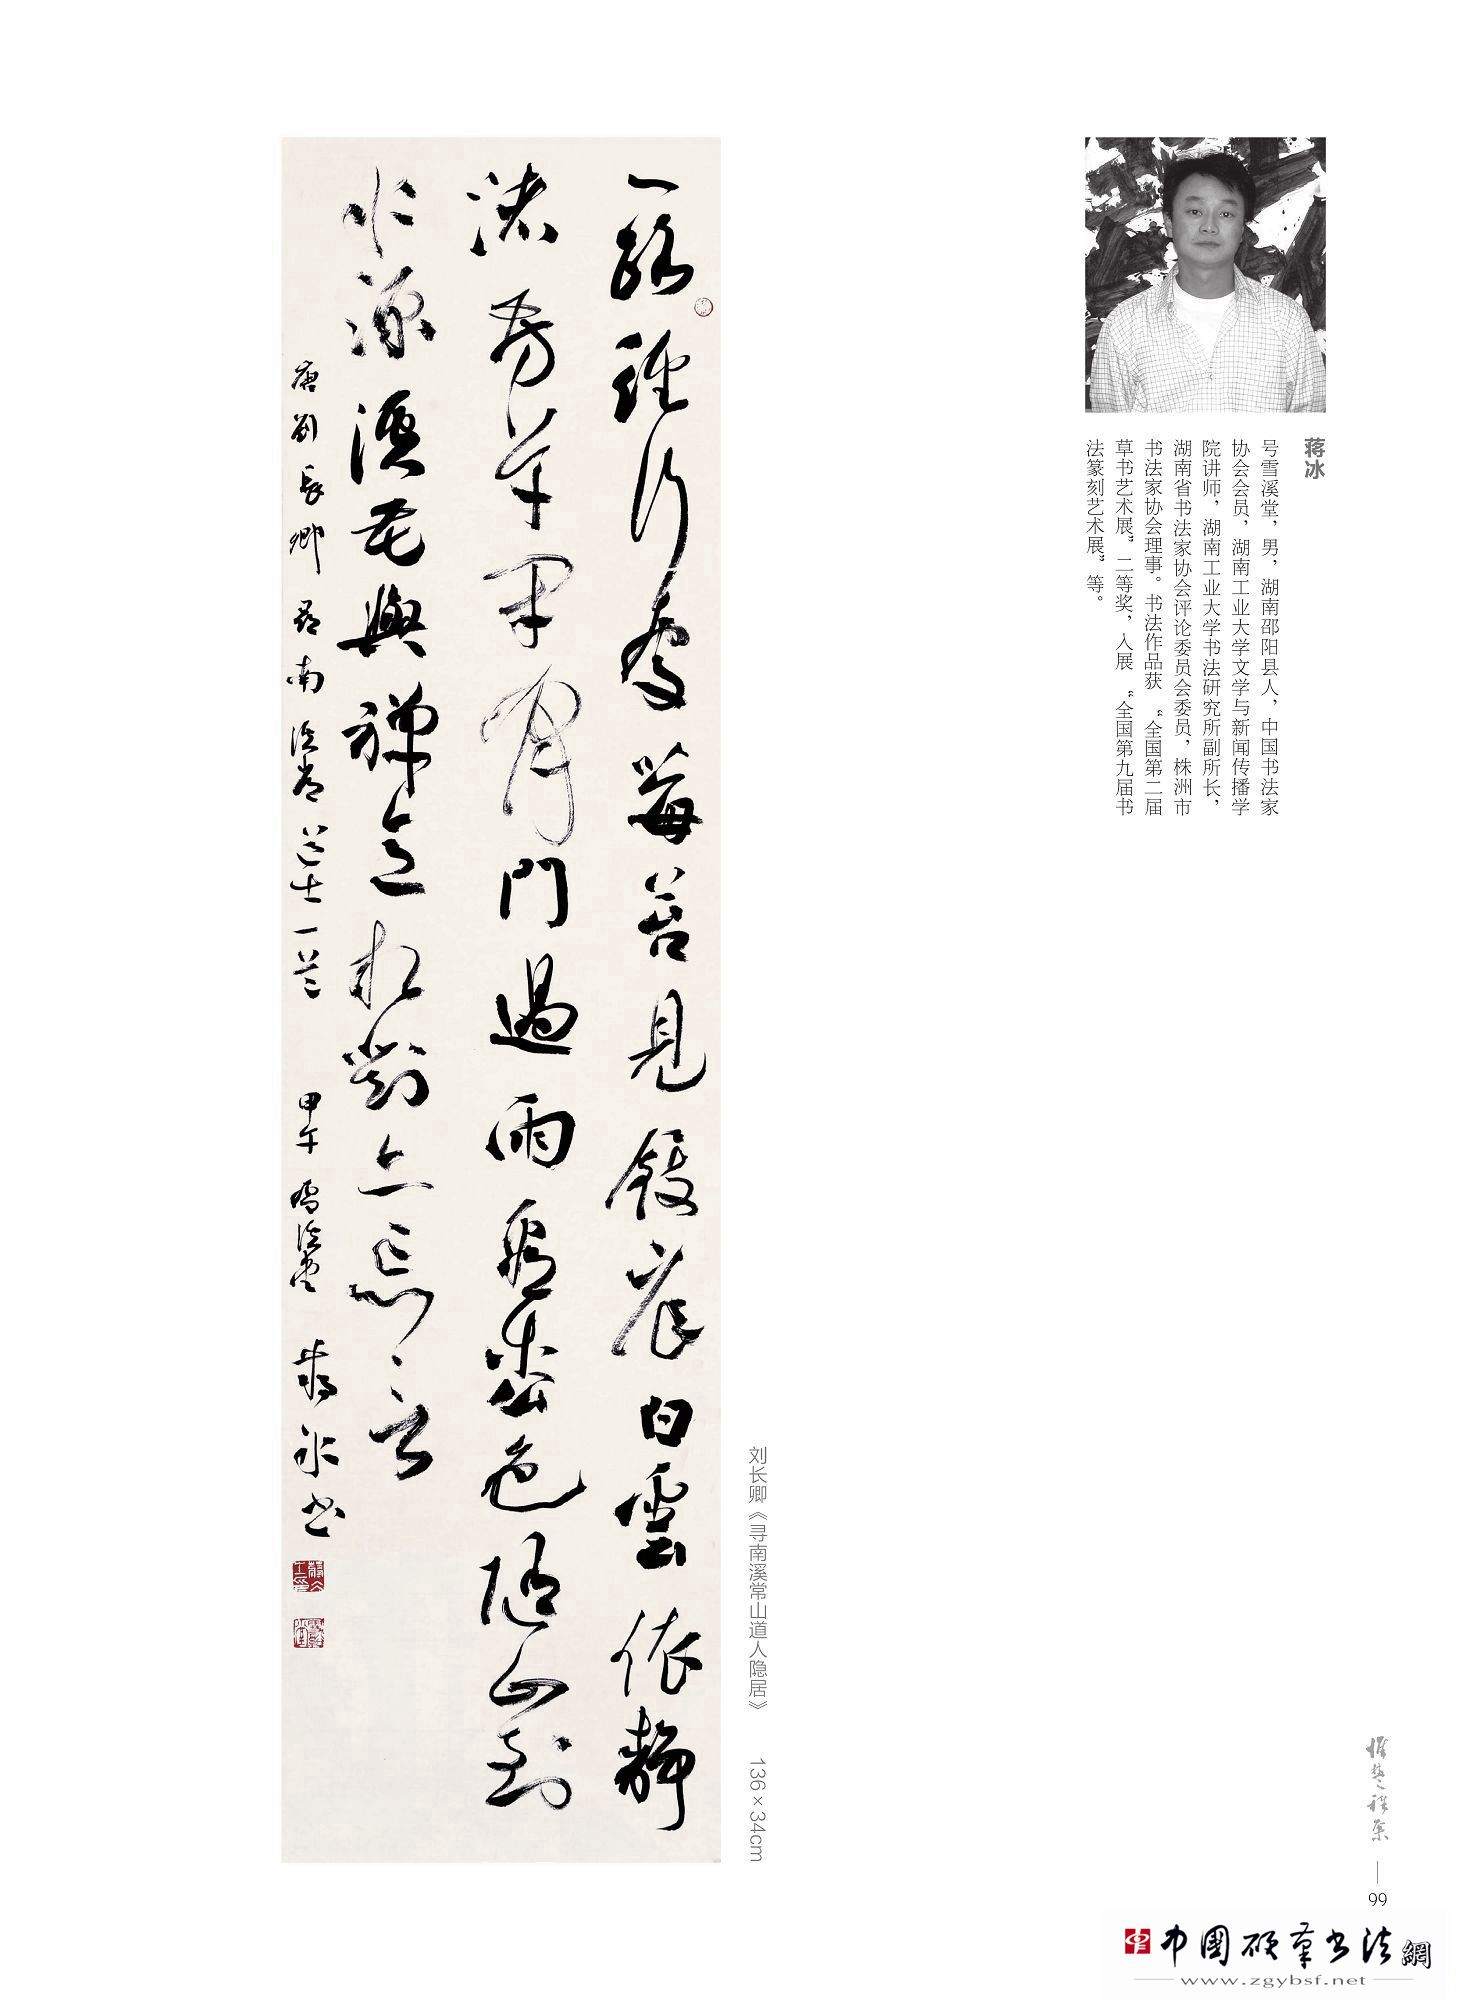 蒋冰
号雪溪堂，男，湖南邵阳县人，中国书法家
协会会员，湖南工业大学文学与新闻传播学
院讲师，湖南工业大学书法研究所副所长，
湖南省书法家协会评论委员会委员，株洲市
书法家协会理事。书法作品获 “全国第二届
草书艺术展”二等奖，入展 “全国第九届书
法篆刻艺术展”等。
一路經行處莓苔見履痕白雲依靜
渚芳草閉閑門過雨看松色隨山到
水源溪花與禪意相對亦忘言
唐劉長卿尋南溪常道士一首 甲午雪溪堂 蔣冰書
刘长卿《寻南溪常山道人隐居》 136×34cm
99
中国硬筆书法網
www.zgybsf.net